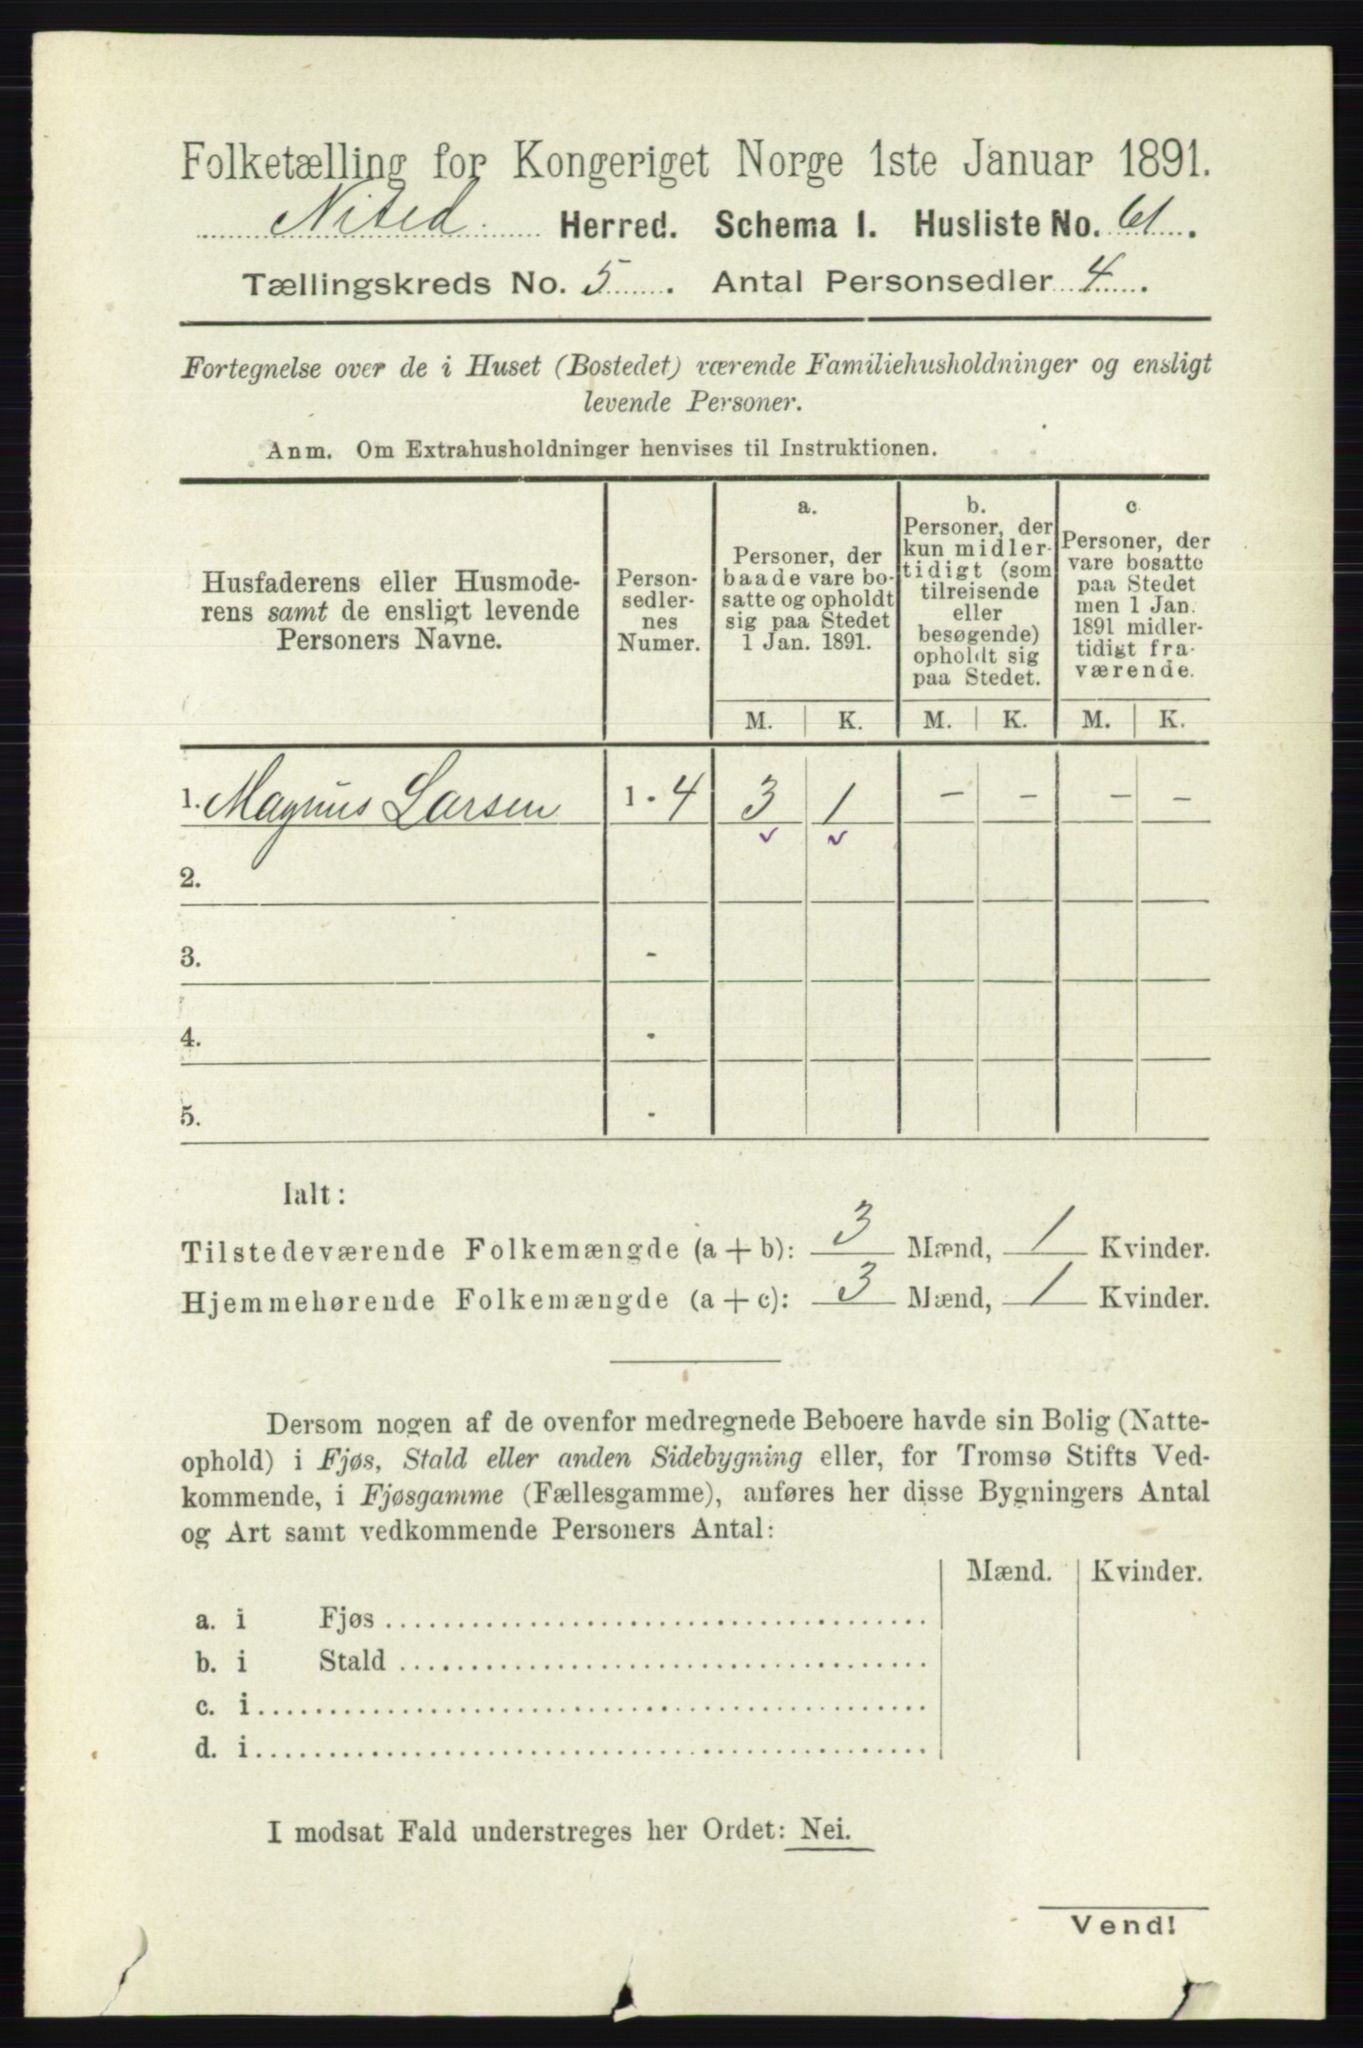 Folketælling for Kongeriget Norge 1ste Januar 1891.
Nited Herred. Schema 1. Husliste No. 61.
Tællingskreds No. 5. Antal Personsedler 4.
Fortegnelse over de i Huset (Bostedet) værende Familiehusholdninger og ensligt
levende Personer.
Anm. Om Extrahusholdninger henvises til Instruktionen.
Husfaderens eller Husmode-
rens samt de ensligt levende
Personers Navne.
Person-
sedler-
nes
Numer.
a.
Personer, der
baade vare bo-
satte og opholdt
sig paa Stedet
1 Jan. 1891.
b.
Personer, der
kun midler-
tidigt (som
tilreisende
eller
besøgende)
opholdt sig
paa Stedet.
c
Personer, der
vare bosatte
paa Stedet
men 1 Jan.
1891 midler-
tidigt fra-
værende.
M. K. M. K. M. K.
1. Magnus Larsen 1 - 4 3 1 - - - -
2.
3. -
4. -
5. -
Ialt:
Tilstedeværende Folkemængde (a + b): 3 Mænd, 1 Kvinder.
Hjemmehørende Folkemængde (a + c): 3 Mænd, 1 Kvinder.
Dersom nogen af de ovenfor medregnede Beboere havde sin Bolig (Natte-
ophold) i Fjøs, Stald eller anden Sidebygning eller, for Tromsø Stifts Ved-
kommende, i Fjøsgamme (Fællesgamme), anføres her disse Bygningers Antal
og Art samt vedkommende Personers Antal:
Mænd. Kvinder.
a. i Fjøs
b. i Stald
c. i
d. i
I modsat Fald understreges her Ordet: Nei.
Vend!